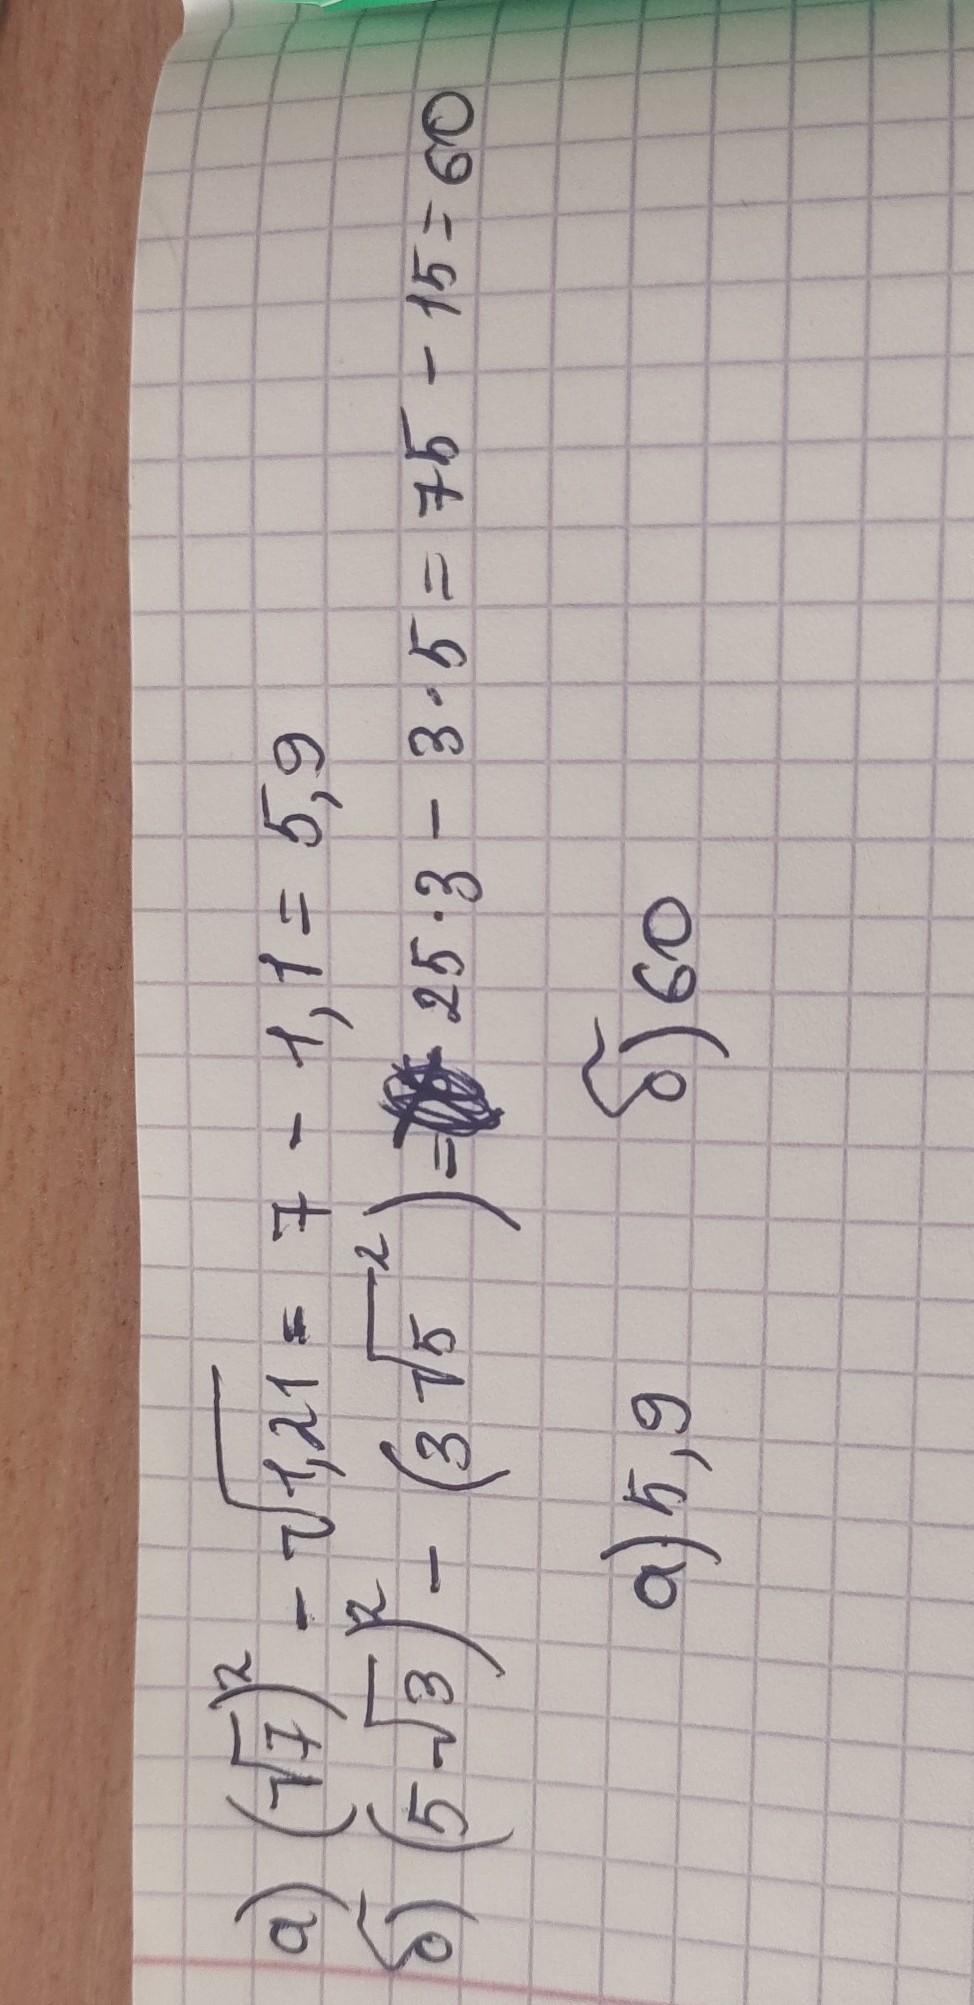 а) (√7)² - √1,21 = 7 - 1,1 = 5,9
б) (5√3)² - (3√5²) = 25·3 - 3·5 = 75 - 15 = 60
а) 5,9 б) 60